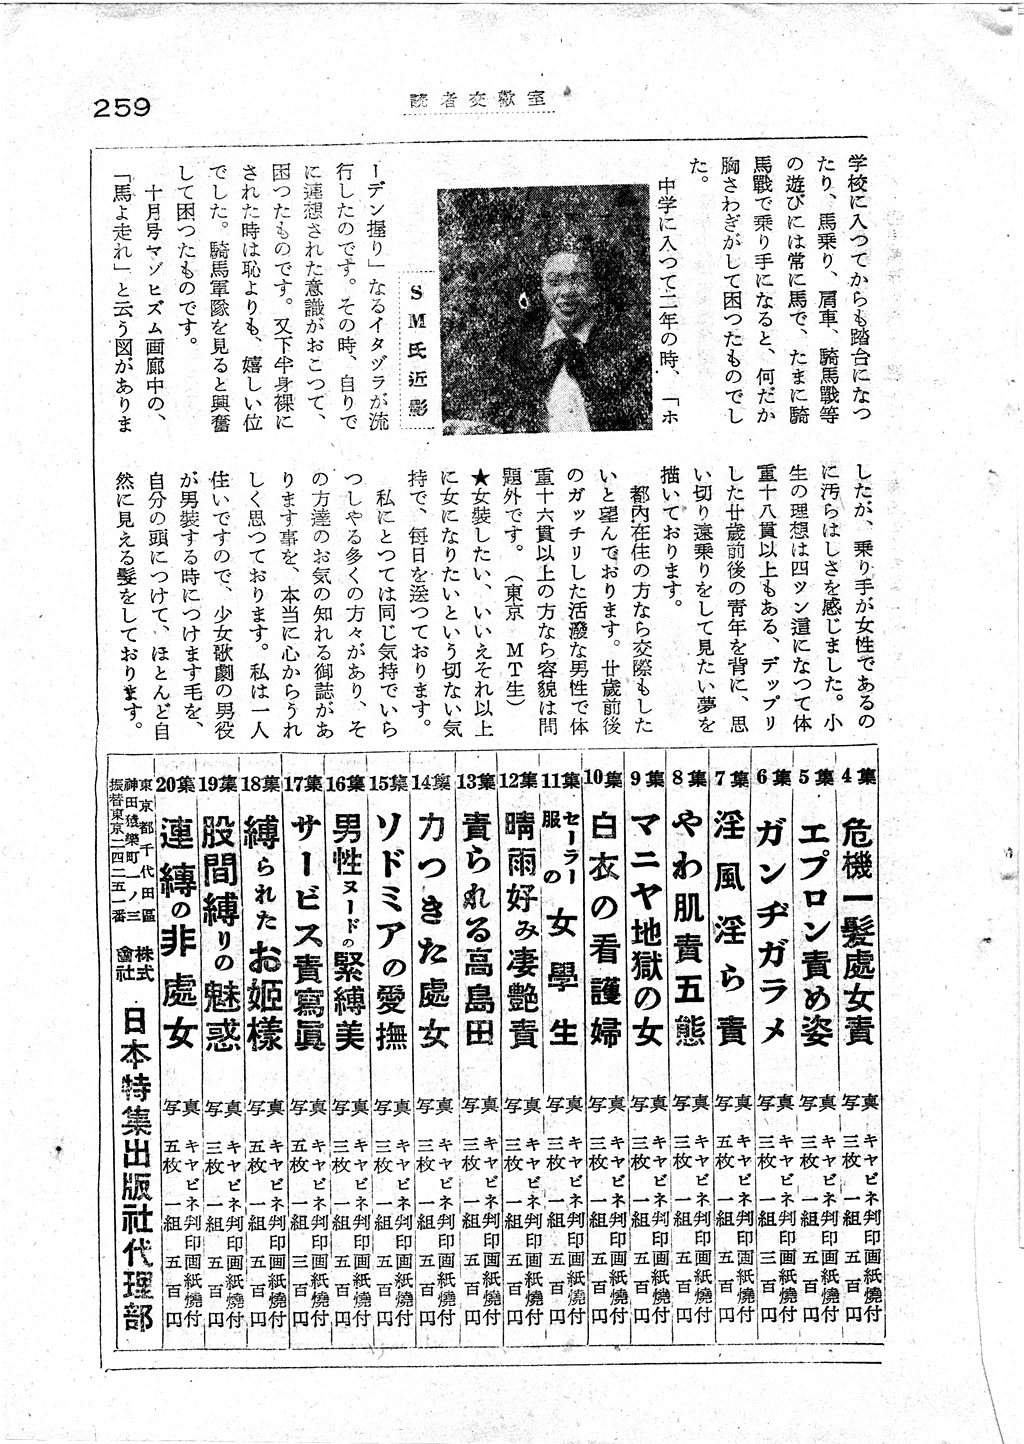 259
読者交歓室
学校に入つてからも踏台になつ
たり、馬乗り、肩車、騎馬戰等
の遊びには常に馬で、たまに騎
馬戰で乗り手になると、何だか
胸さわぎがして困つたものでし
た。
中学に入つて二年の時、「ホ
ーデン握り」なるイタヅラが流
行したのです。その時、自りで
に連想された意識がおこつて、
困つたものです。又下半身裸に
された時は恥よりも、嬉しい位
でした。騎馬軍隊を見ると興奮
して困つたものです。
十月号マゾヒズム画廊中の、
「馬よ走れ」と云う図がありま
SM氏近影
したが、乗り手が女性であるの
に汚らはしさを感じました。小
生の理想は四ツン這になつて体
重十八貫以上もある、デップリ
した廿歳前後の青年を背に、思
い切り遠乗りをして見たい夢を
描いております。
都内在住の方なら交際もした
いと望んでおります。廿歳前後
のガッチリした活潑な男性で体
重十六貫以上の方なら容貌は問
題外です。（東京 MT生）
★女装したい、いいえそれ以上
に女になりたいという切ない気
持で、毎日を送つております。
私にとつては同じ気持でいら
つしやる多くの方々があり、そ
の方達のお気の知れる御誌があ
ります事を、本当に心からうれ
しく思つております。私は一人
住いですので、少女歌劇の男役
が男装する時につけます毛を、
自分の頭につけて、ほとんど自
然に見える髪をしております。
4集 危機一髪處女責 写真 キャビネ判印画紙燒付 三枚一組 五百円
5集 エプロン責め姿 写真 キャビネ判印画紙燒付 三枚一組 五百円
6集 ガンヂガラメ 写真 キャビネ判印画紙燒付 三枚一組 三百円
7集 淫風淫ら責 写真 キャビネ判印画紙燒付 五枚一組 五百円
8集 やわ肌責五態 写真 キャビネ判印画紙燒付 三枚一組 五百円
9集 マニヤ地獄の女 写真 キャビネ判印画紙燒付 三枚一組 五百円
10集 白衣の看護婦 写真 キャビネ判印画紙燒付 三枚一組 五百円
11集 セーラー服の女學生 写真 キャビネ判印画紙燒付 三枚一組 五百円
12集 晴雨好み凄艶責 写真 キャビネ判印画紙燒付 三枚一組 五百円
13集 責られる高島田 写真 キャビネ判印画紙燒付 三枚一組 五百円
14集 力つきた處女 写真 キャビネ判印画紙燒付 三枚一組 五百円
15集 ソドミアの愛撫 写真 キャビネ判印画紙燒付 三枚一組 五百円
16集 男性ヌードの緊縛美 写真 キャビネ判印画紙燒付 三枚一組 五百円
17集 サービス責寫眞 写真 キャビネ判印画紙燒付 五枚一組 三百円
18集 縛られたお姫様 写真 キャビネ判印画紙燒付 五枚一組 五百円
19集 股間縛りの魅惑 写真 キャビネ判印画紙燒付 三枚一組 五百円
20集 連縛の非處女 写真 キャビネ判印画紙燒付 五枚一組 五百円
東京都千代田區
神田猿樂町一ノ三
振替東京二四二五一番
株式會社 日本特集出版社代理部